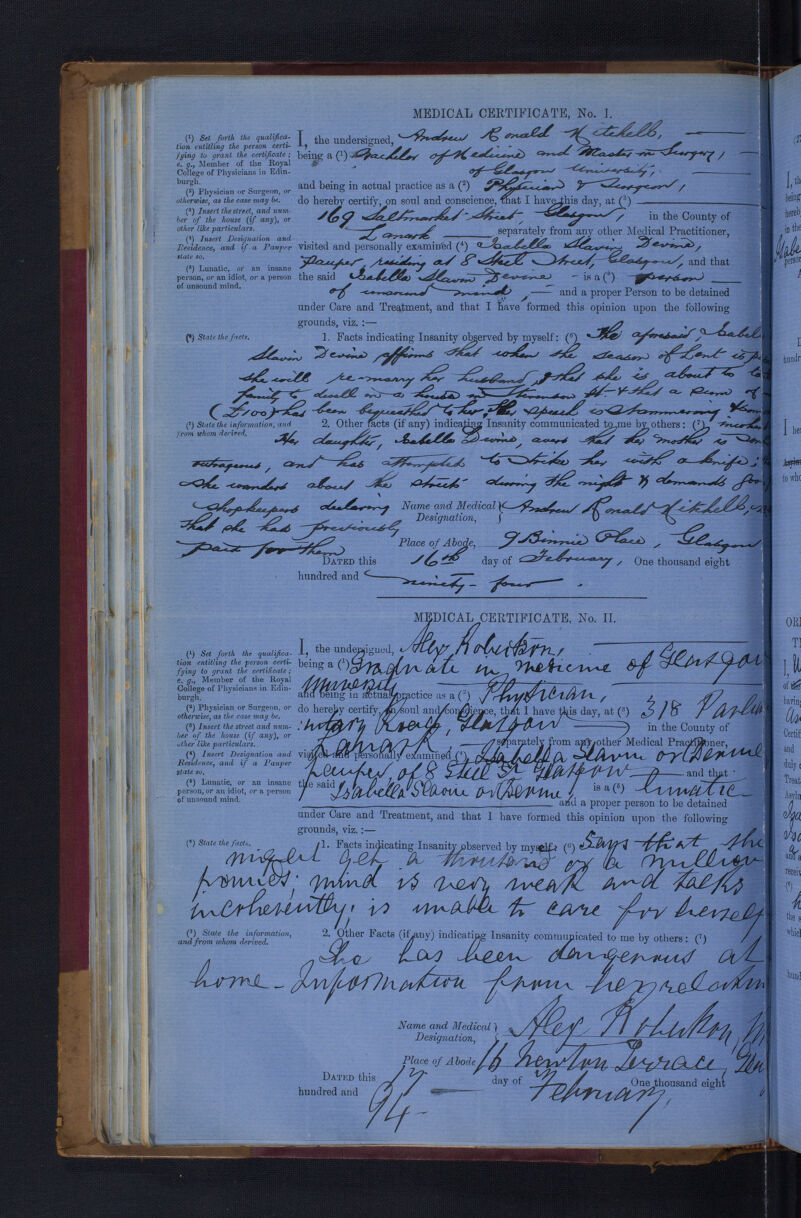 MEDICAL CERTIFICATE, No. I.
(¹) Set forth the qualifica-
tion entitling the person certi-
fying to grant the certificate;
e. g., Member of the Royal
College of Physicians in Edin-
burgh.
(²) Physician or Surgeon, or
otherwise, as the case may be.
(³) Insert the street, and num-
ber of the house (if any), or
other like particulars.
(⁴) Insert Designation and
Residence, and if a Pauper
state so.
(⁵) Lunatic, or an insane
person, or an idiot, or a person
of unsound mind.
I, the undersigned, Andrew Ronald Mitchell,
being a (¹) Bachelor of Medicine and Master in Surgery,
of Glasgow University,
and being in actual practice as a (²) Physician & Surgeon,
do hereby certify, on soul and conscience, that I have this day, at (³)
169 Saltmarket Street, Glasgow, in the County of
Lanark separately from any other Medical Practitioner,
visited and personally examined (⁴) Isabella Slavin Devine,
pauper, residing at 8 Steel Street, Glasgow, and that
the said Isabella Slavin Devine - is a (⁵) person
of unsound mind, and a proper Person to be detained
under Care and Treatment, and that I have formed this opinion upon the following
grounds, viz. :—
(⁶) State the facts.
1. Facts indicating Insanity observed by myself: (⁶) The aforesaid, Isabel
Slavin Devine affirms that when the season of Lent is
she will re-marry her husband, & that she is about to
family to dwell in a house in Stevenson St. & that a sum of
(£100) has been bequeathed to her. Her speech is stammering &
(⁷) State the information, and
from whom derived.
2. Other facts (if any) indicating Insanity communicated to me by others: (⁷)
Her daughter, Isabella Devine, avers that her mother is
outrageous, and has attempted to strike her with a knife;
she wanders about the streets during the night & demands
shopkeepers declaring
that she has previously
paid for them
Name and Medical Designation, Andrew Ronald Mitchell,
Place of Abode, 9 Binnie Place, Glasgow
DATED this 16th day of February, One thousand eight
hundred and ninety-four.
MEDICAL CERTIFICATE, No. II.
(¹) Set forth the qualifica-
tion entitling the person certi-
fying to grant the certificate;
e. g., Member of the Royal
College of Physicians in Edin-
burgh.
(²) Physician or Surgeon, or
otherwise, as the case may be.
(³) Insert the street and num-
ber of the house (if any), or
other like particulars.
(⁴) Insert Designation and
Residence, and if a Pauper
state so.
(⁵) Lunatic, or an insane
person, or an idiot, or a person
of unsound mind.
I, the undersigned, Alex Robertson,
being a (¹) Graduate in medicine of Glasgow
University
and being in actual practice as a (²) Physician,
do hereby certify, on soul and conscience, that I have this day, at (³) 318 Parlia
:mentary Road, Glasgow in the County of
Lanark separately from any other Medical Practitioner,
visited and personally examined (⁴) Isabella Slavin or Devine
pauper, of 8 Steel St Glasgow and that
the said Isabella Slavin or Devine is a (⁵) lunatic
and a proper person to be detained
under Care and Treatment, and that I have formed this opinion upon the following
grounds, viz. :—
(⁶) State the facts.
1. Facts indicating Insanity observed by myself: (⁶) Says that she
might get a thousand or a million
pounds; mind is very weak and talks
incoherently, is unable to care for herself
(⁷) State the information,
and from whom derived.
2. Other Facts (if any) indicating Insanity communicated to me by others: (⁷)
She has been dangerous at
home - Information from her relation
Name and Medical Designation, Alex Robertson, M
Place of Abode 16 Newton Terrace, Gla
DATED this 17 day of February, One thousand eight
hundred and 94